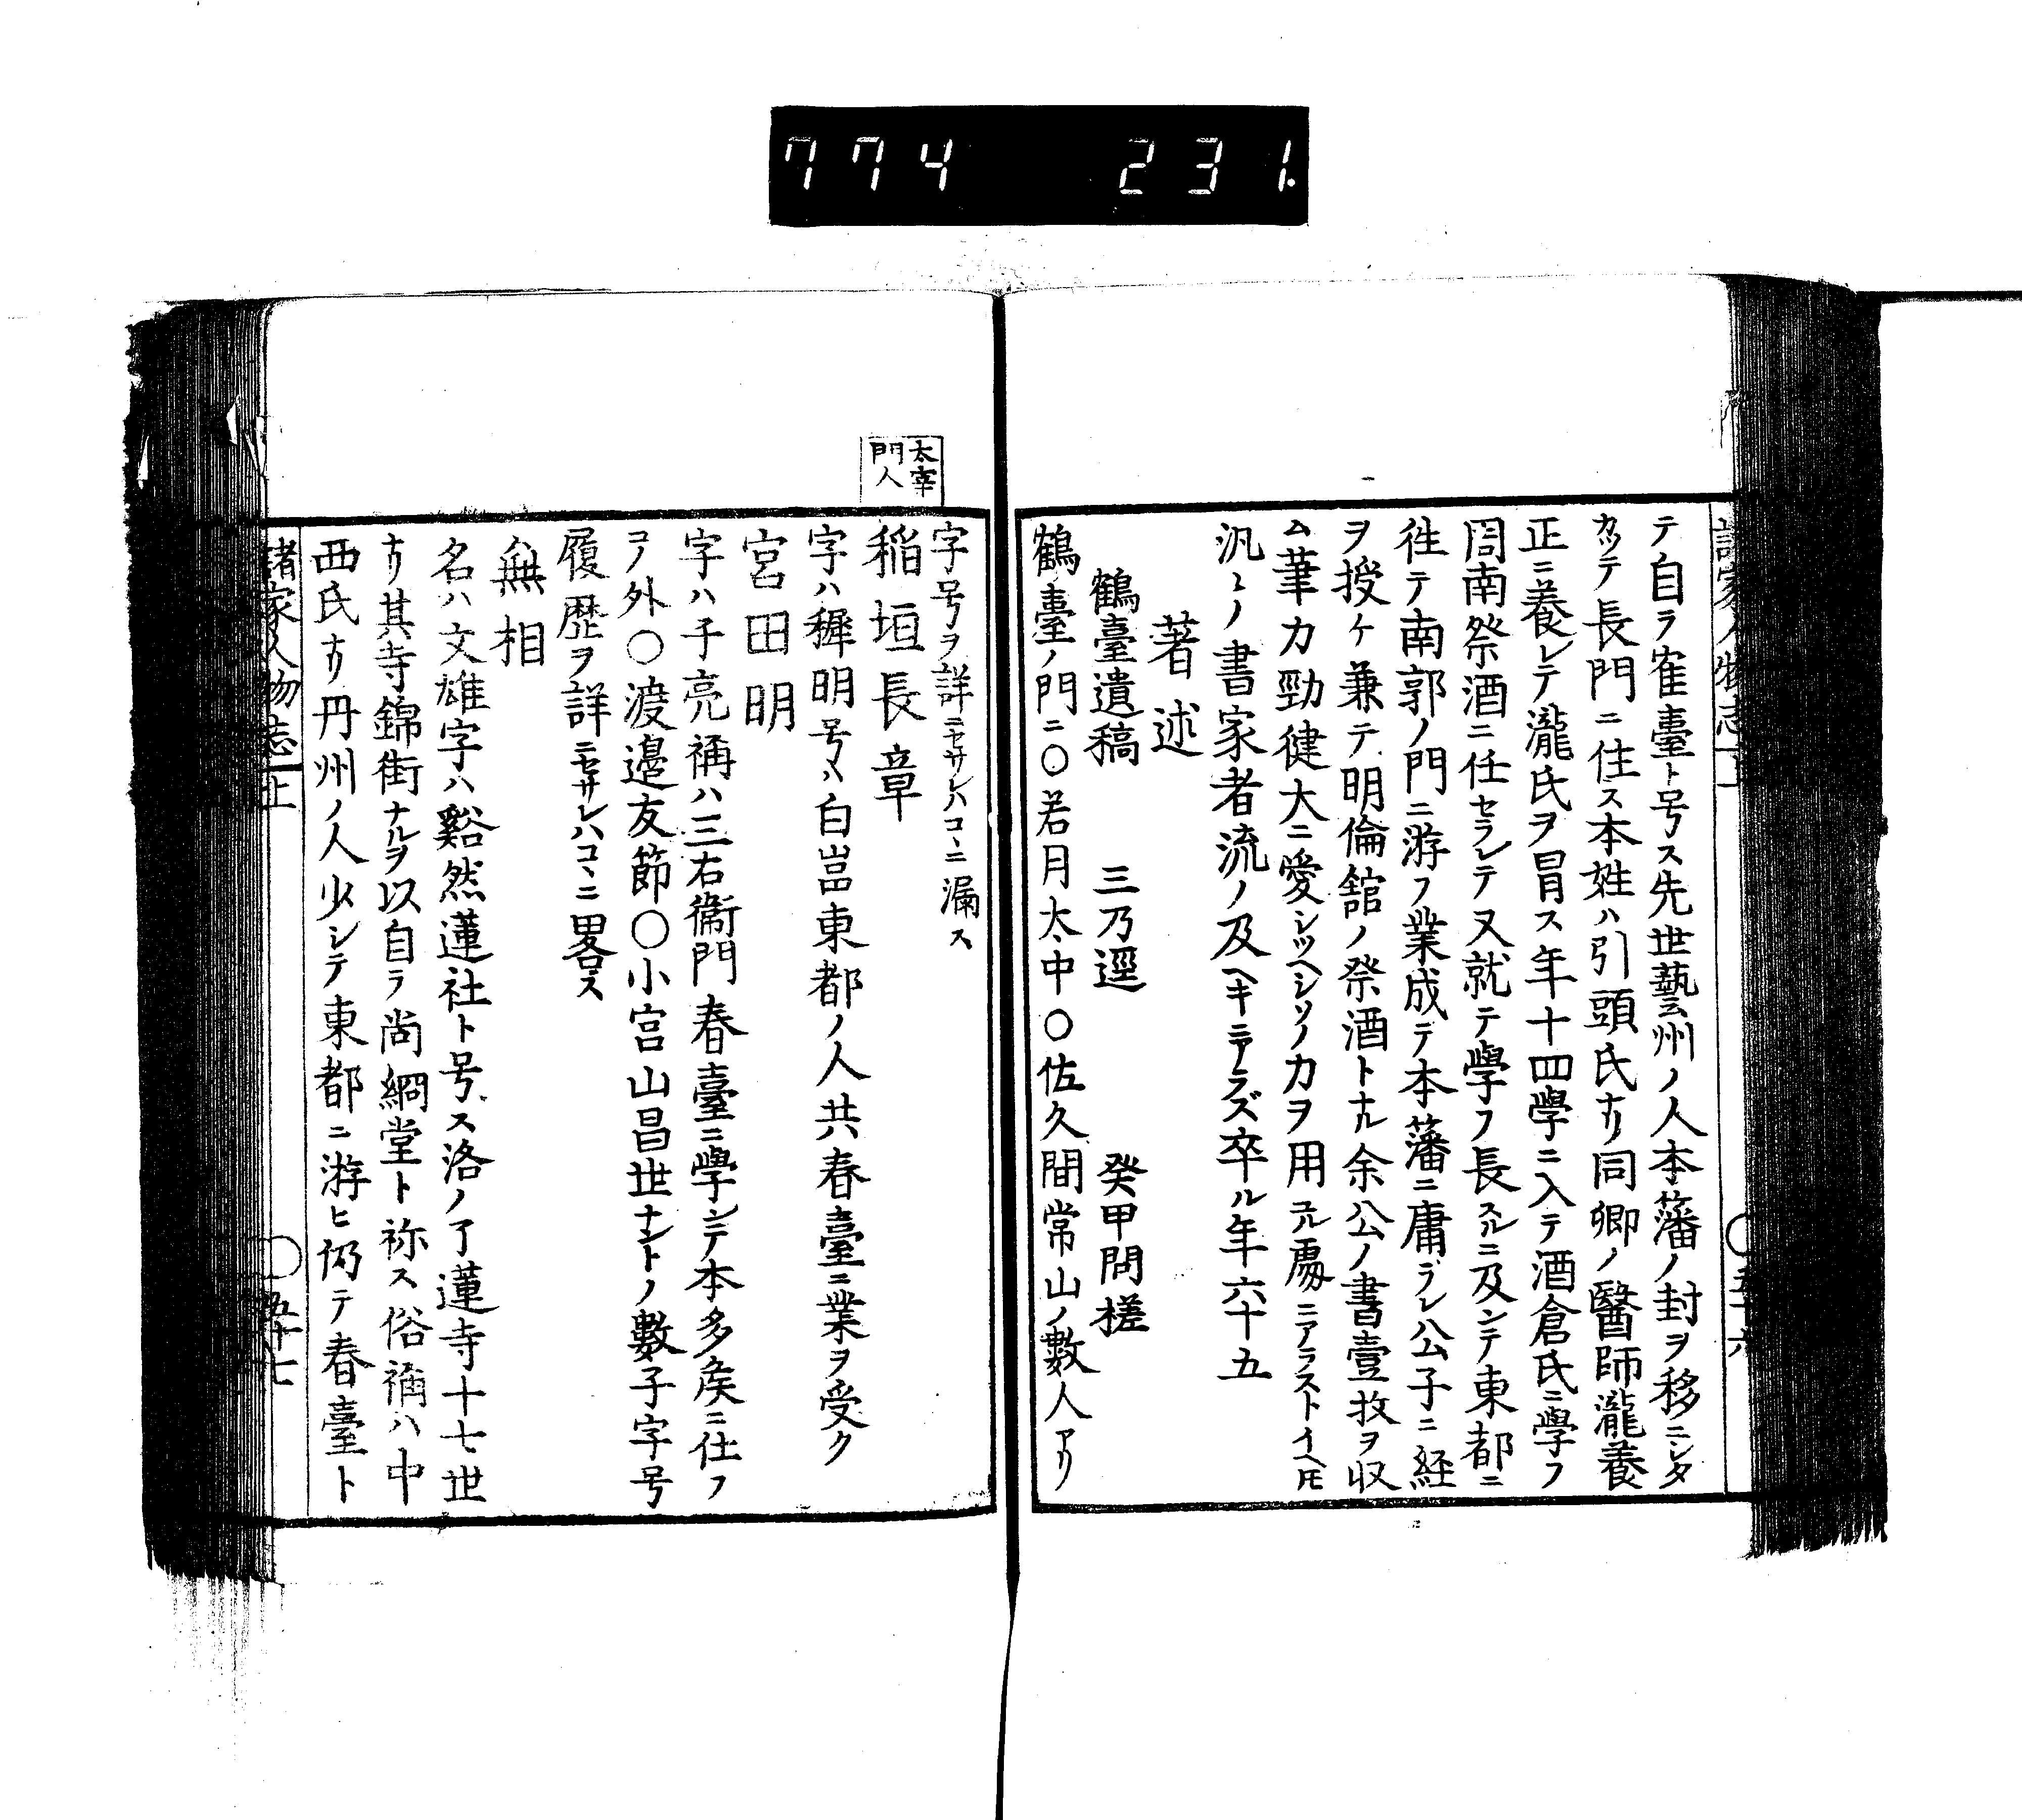 774 231.
テ自ラ隺臺ト号ス先世藝州ノ人本藩ノ封ヲ移ニシタ
カッテ長門ニ住ス本姓ハ引頭氏ナリ同郷ノ醫師瀧養
正ニ養レテ瀧氏ヲ冒ス年十四學ニ入テ酒倉氏ニ學フ
周南祭酒ニ任セラレテ又就テ學フ長スルニ及ンテ東都ニ
徃テ南郭ノ門ニ游フ業成テ本藩ニ庸ヲレ公子ニ経
ヲ授ケ兼テ明倫舘ノ祭酒トナル余公ノ書壹枚ヲ収
ム筆力勁健大ニ愛シツヘシソノ力ヲ用ユル處ニアラストイヘ𪜈
汎〻ノ書家者流ノ及ヘキニアラズ卒ル年六十五
著述
鶴臺遺稿 三乃逕 癸甲問槎
鶴臺ノ門ニ〇若月大中〇佐久間常山ノ數人アリ
諸家人物志 上 〇五十六
太宰
門人
字号ヲ詳ニセサレハコヽニ漏ス
稲垣長章
字ハ穉明号ハ白嵓東都ノ人共春臺ニ業ヲ受ク
宮田明
字ハ子亮稱ハ三右衞門春臺ニ學シテ本多矦ニ仕フ
コノ外〇渡邉友節〇小宮山昌世ナントノ數子字号
履歴ヲ詳ニセサレハコヽニ畧ス
無相
名ハ文雄字ハ谿然蓮社ト号ス洛ノ了蓮寺十七世
ナリ其寺錦街ナルヲ以自ラ尚綗堂ト称ス俗稱ハ中
西氏ナリ丹州ノ人少シテ東都ニ游ヒ仍テ春臺ト
諸家人物志 上 〇五十七